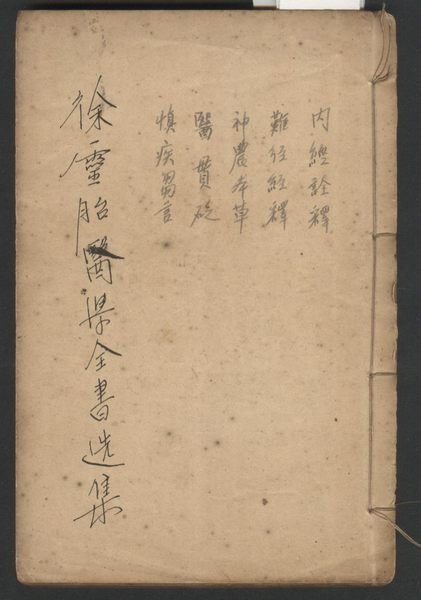 内經詮釋
難经經釋
神農本草
醫貫砭
慎疾芻言
徐靈胎醫学全書选集